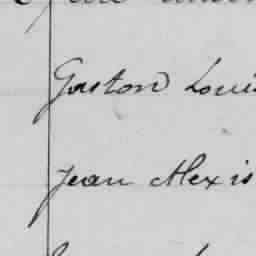 Gaston Loui
Jean Alexis